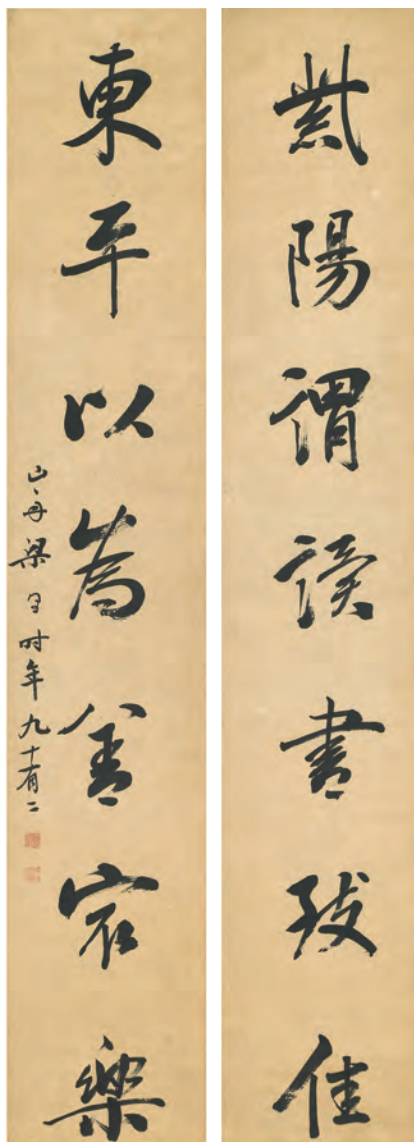 紫陽謂讀書致佳
東平以為善㝡樂
山舟梁同書時年九十有二